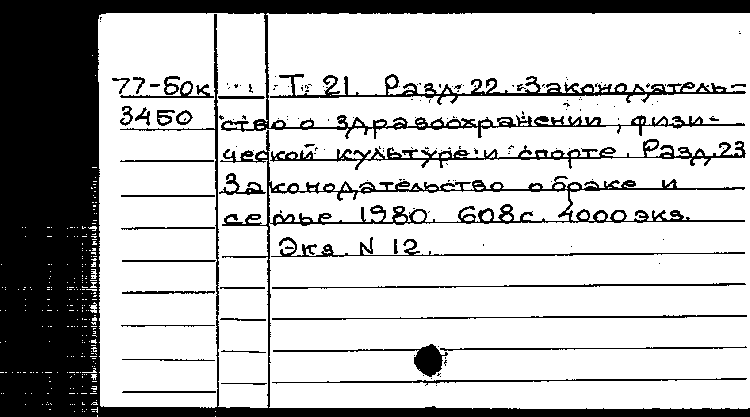 77-50к Т. 21. Разд. 22. Законодатель-
3450 ство о здравоохранении, физи-
ческой культуре и спорте. Разд. 23
Законодательство о браке и
семье. 1980. 608с. 4000 экз.
Экз. N 12.